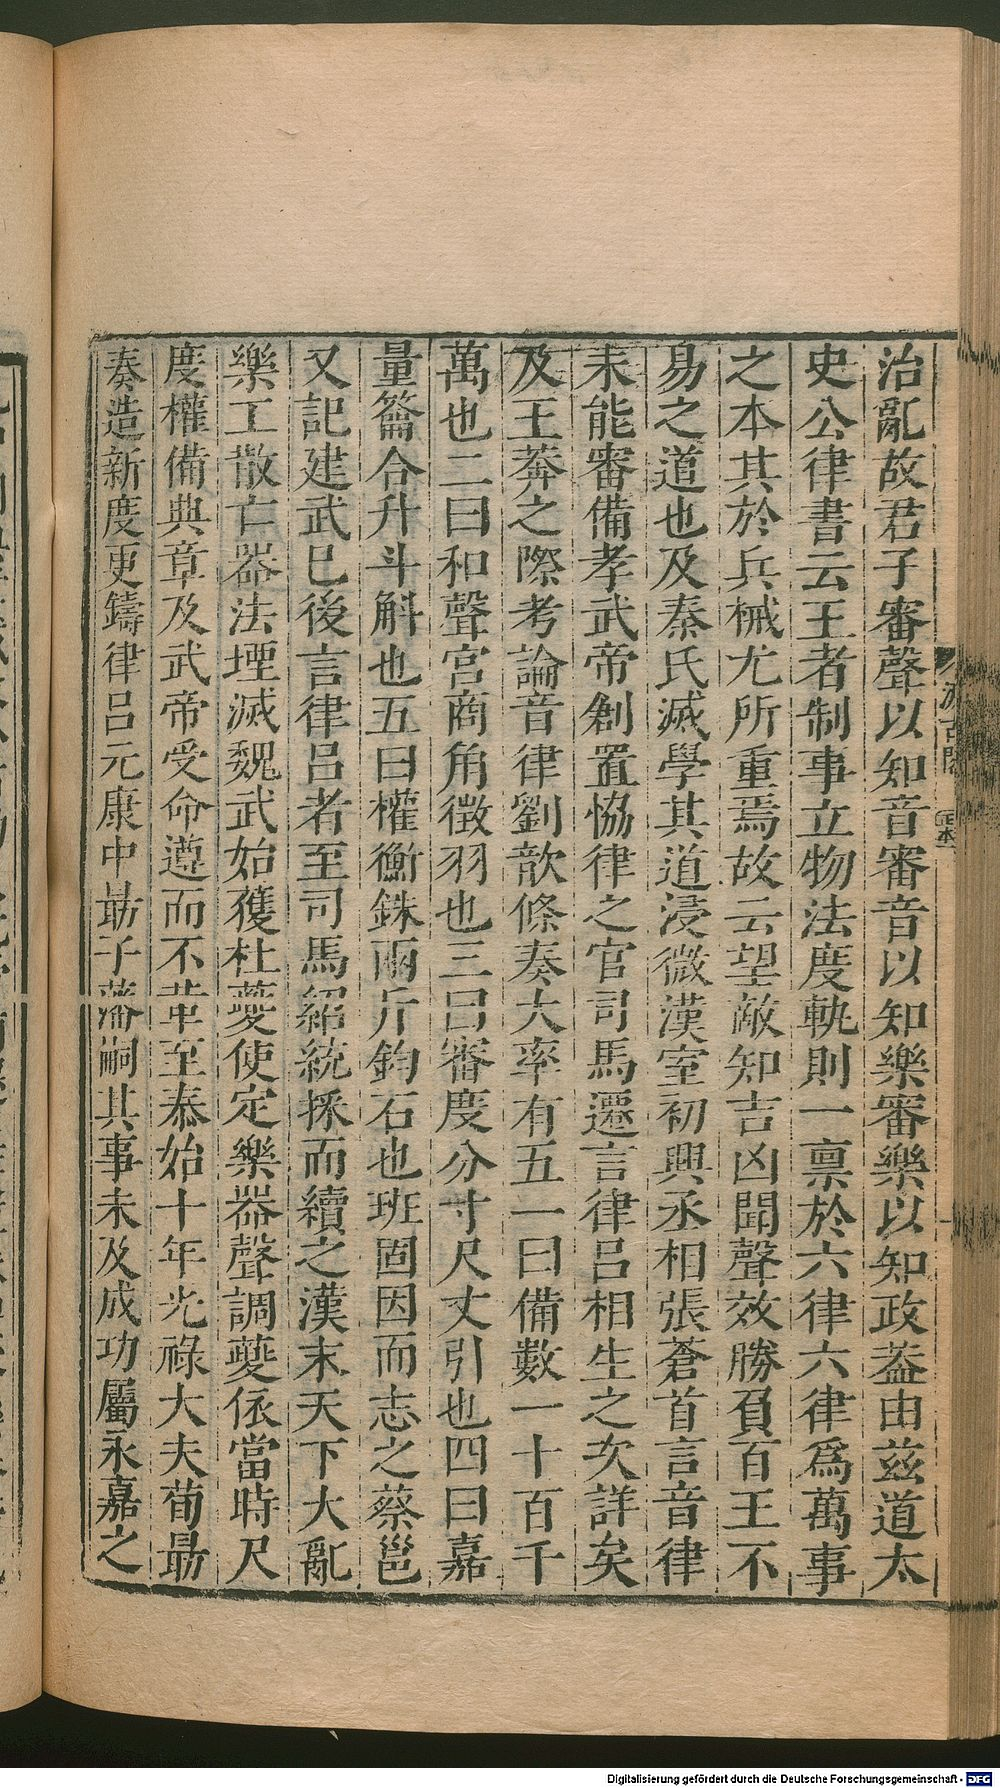 治亂故君子審聲以知音審音以知樂審樂以知政葢由茲道太
史公律書云王者制事立物法度軌則一禀於六律六律爲萬事
之本其於兵械尤所重焉故云望敵知吉凶聞聲效勝負百王不
易之道也及秦氏滅學其道浸微漢室初興丞相張蒼首言音律
未能審備孝武帝創置恊律之官司馬遷言律呂相生之次詳矣
及王莾之際考論音律劉歆條奏大率有五一曰備數一十百千
萬也二曰和聲宮商角徵羽也三曰審度分寸尺丈引也四曰嘉
量籥合升斗斛也五曰權衡銖兩斤鈞石也班固因而志之蔡邕
又記建武巳後言律呂者至司馬紹統採而續之漢末天下大亂
樂工散亡器法堙滅魏武始獲杜夔使定樂器聲調夔依當時尺
度權備典章及武帝受命遵而不革至泰始十年光祿大夫荀勗
奏造新度更鑄律呂元康中勗子藩嗣其事未及成功屬永嘉之
汲古閣
Digitalisierung gefördert durch die Deutsche Forschungsgemeinschaft - DFG